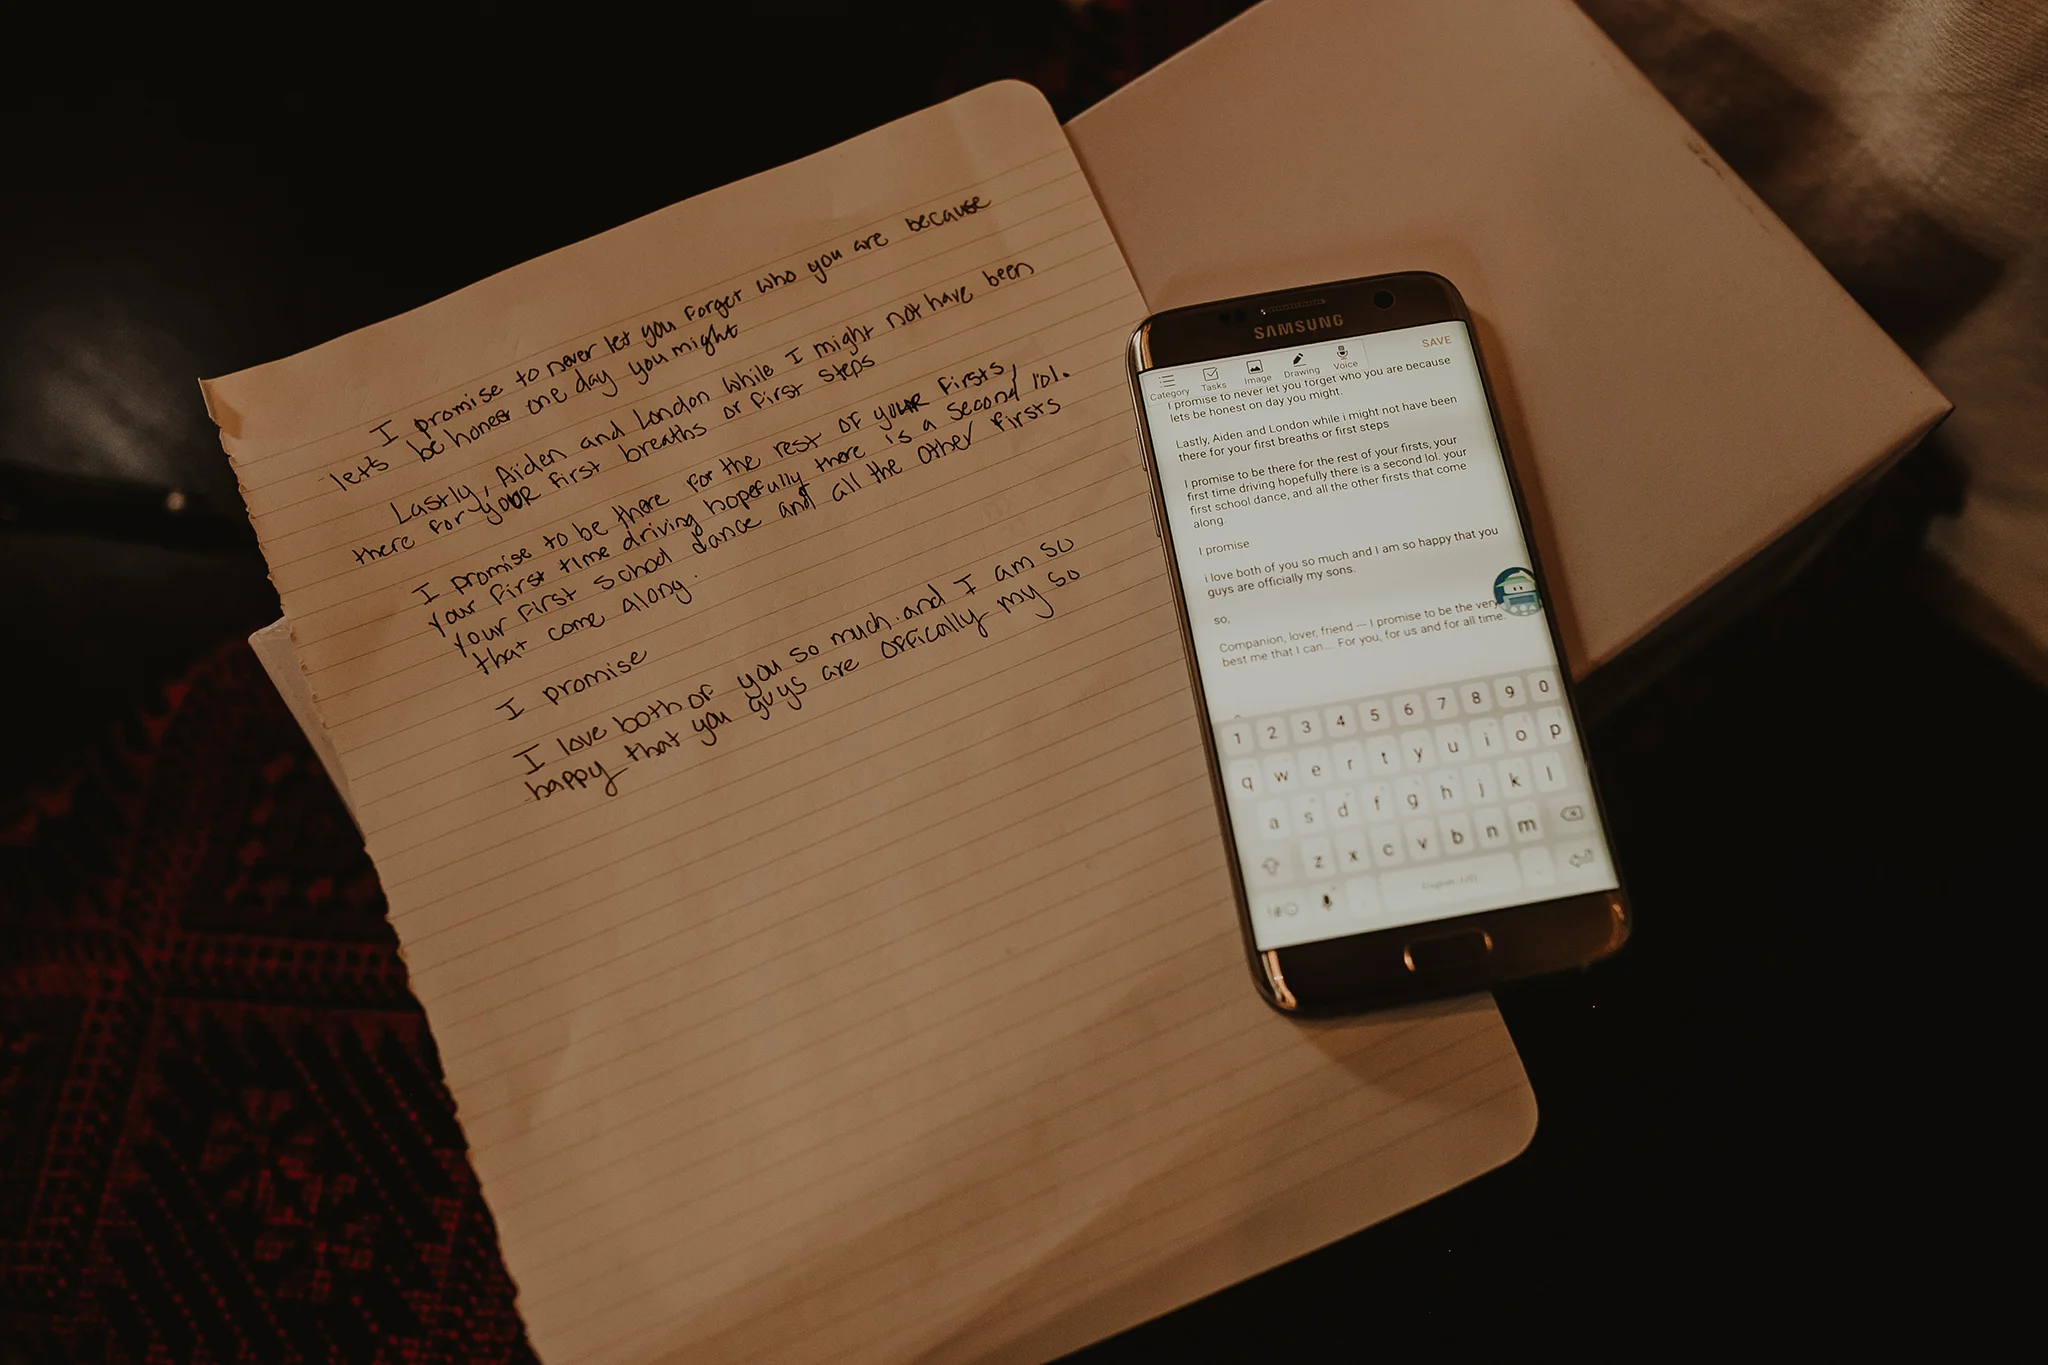 I promise to never let you forget who you are because
let's be honest one day you might
Lastly, Aiden and London while I might not have been
there for your first breaths or first steps
I promise to be there for the rest of your firsts,
Your first time driving hopefully there is a second lol.
Your first school dance and all the other firsts
that come along.
I promise
I love both of you so much and I am so
happy that you guys are offically my so
SAMSUNG
SAVE
Category Tasks Image Drawing Voice
I promise to never let you forget who you are because
lets be honest on day you might.
Lastly, Aiden and London while i might not have been
there for your first breaths or first steps
I promise to be there for the rest of your firsts, your
first time driving hopefully there is a second lol. your
first school dance, and all the other firsts that come
along.
I promise
i love both of you so much and I am so happy that you
guys are officially my sons.
so,
Companion, lover, friend — I promise to be the very
best me that I can... For you, for us and for all time.
1 2 3 4 5 6 7 8 9 0
q w e r t y u i o p
a s d f g h j k l
z x c v b n m
English (US)